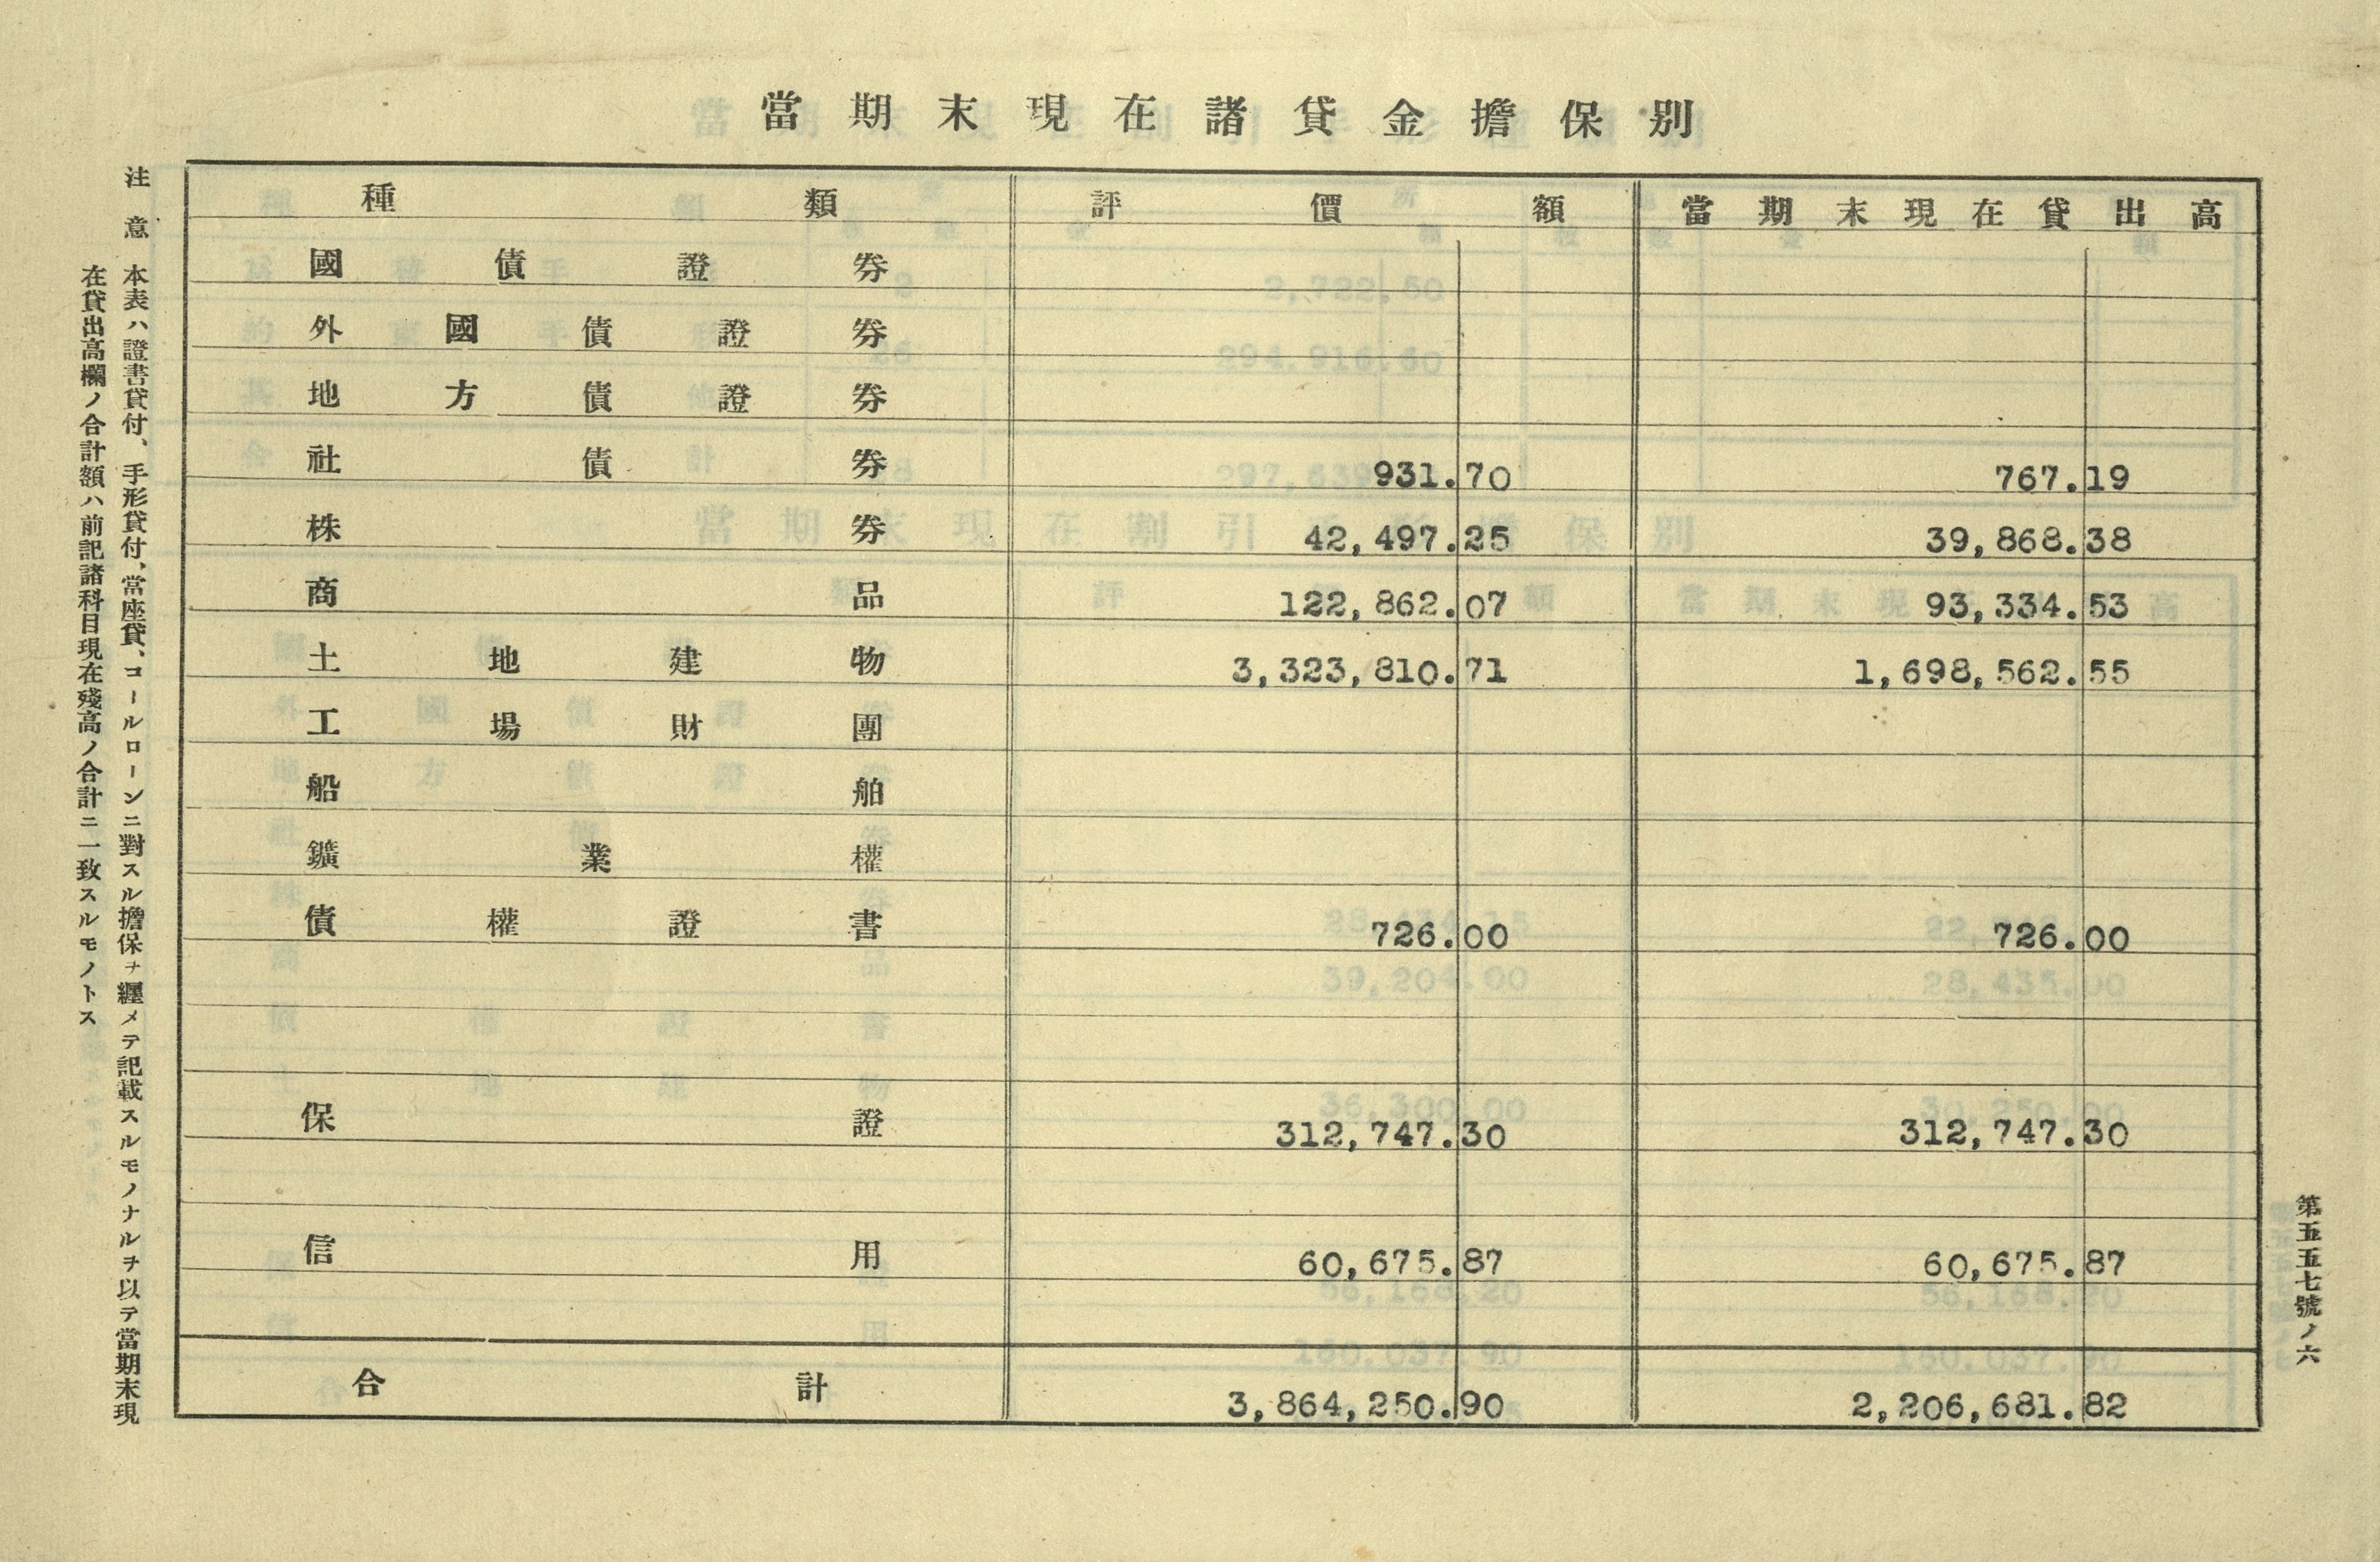 當期末現在諸貸金擔保別
種類 評價額 當期末現在貸出高
國債證券
外國債證券
地方債證券
社債券 931.70 767.19
株券 42,497.25 39,868.38
商品 122,862.07 93,334.53
土地建物 3,323,810.71 1,698,562.55
工場財團
船舶
鑛業權
債權證書 726.00 726.00
保證 312,747.30 312,747.30
信用 60,675.87 60,675.87
合計 3,864,250.90 2,206,681.82
第五五七號ノ六
注意 本表ハ證書貸付、手形貸付、當座貸、コールローンニ對スル擔保ヲ纒メテ記載スルモノナルヲ以テ當期末現
在貸出高欄ノ合計額ハ前記諸科目現在殘高ノ合計ニ一致スルモノトス